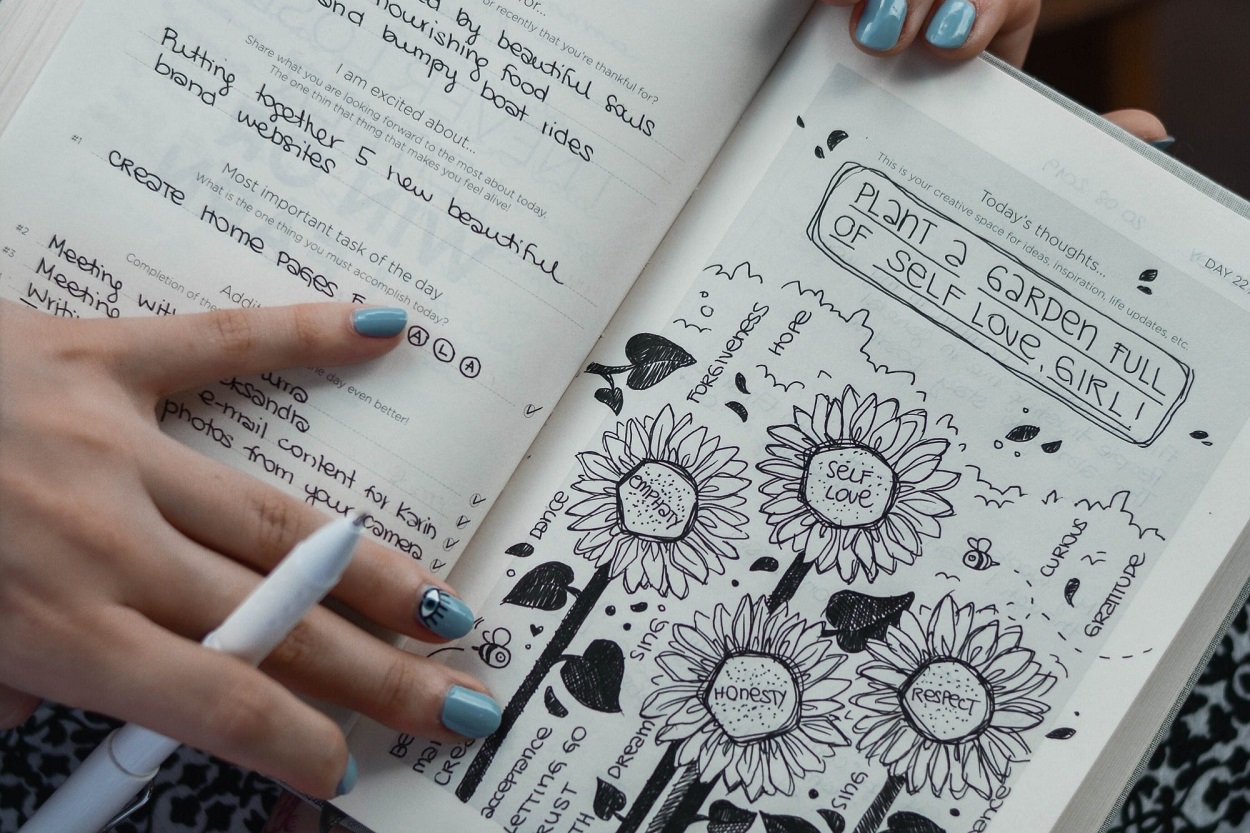 or recently that you're thankful for?
by beautiful souls
nourishing food
and bumpy boat rides
I am excited about...
Share what you are looking forward to the most about today.
The one thin that thing that makes you feel alive!
Putting together 5 new beautiful
brand websites
Most important task of the day
What is the one thing you must accomplish today?
#1
CREATE HOME PAGES
A L A
Completion of the
#2
Meeting with
#3
Meeting
day even better!
e-mail content for Karin
photos from your camera
20 08 2019
DAY 22
Today's thoughts...
This is your creative space for ideas, inspiration, life updates, etc.
PLANT a GARDEN FULL
OF SELF LOVE, GIRL!
FORGIVENESS
HOPE
EMPHATY
SELF
LOVE
DANCE
CURIOUS
GRATITUDE
SING
HONESTY
RESPECT
acceptence
LETTING GO
DREAM
SING